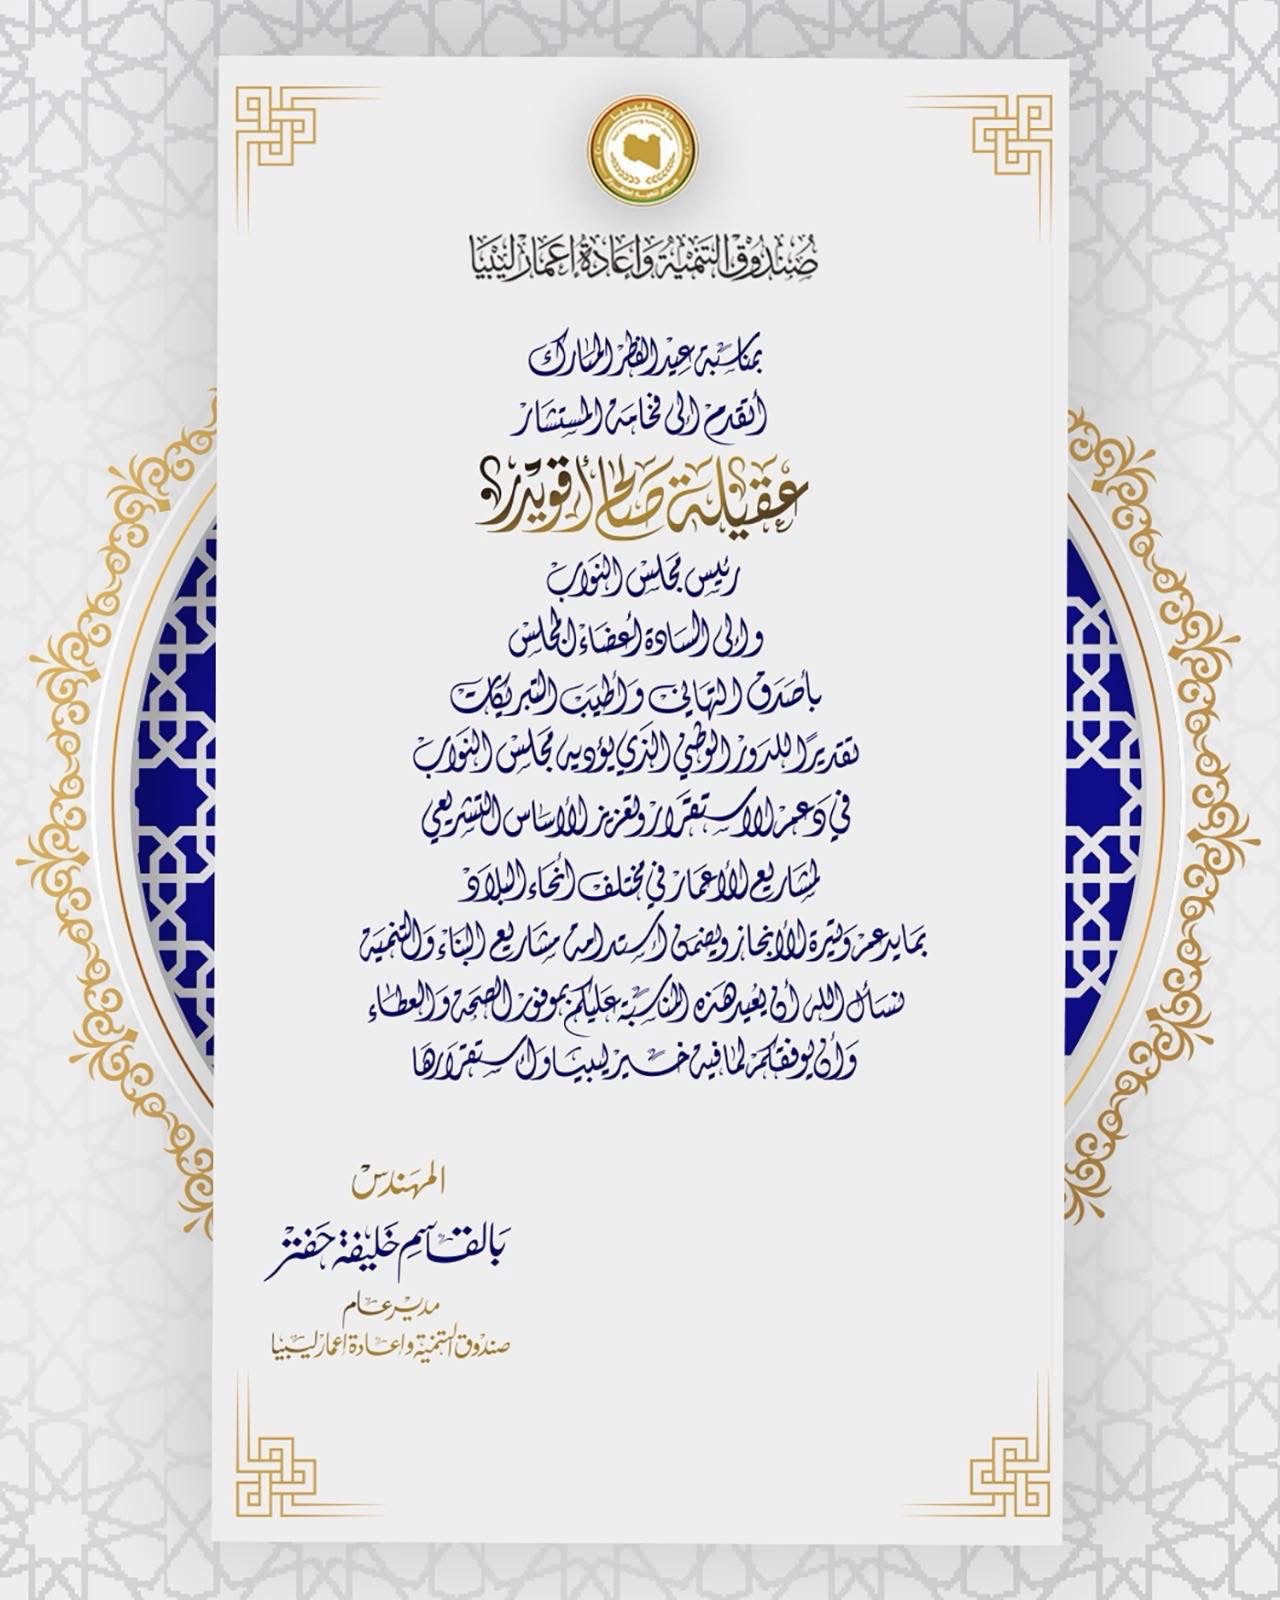 صُندُوق التَنمية وَإعَادَة إعَمار ليبيَا
بمناسَبة عيد الفطر المبارك
أتقدم إلى فخامة المستشار
عقيلة صالح أقويدر
رئيس مجلس النواب
وإلى السادة أعضاء المجلس
بأصدق التهاني وأطيب التبريكات
تقديرًا للدور الوطني الذي يؤديه مجلس النواب
في دعم الاستقرار وتعزيز الأساس التشريعي
لمشاريع الأعمار في مختلف أنحاء البلاد
بما يدعم وتيرة الأنجاز ويضمن إستدامة مشاريع البناء والتنمية
نسأل الله أن يُعيد هذه المناسبة عليكم بموفور الصحة والعطاء
وأن يوفقكم لما فيه خير ليبيا وإستقرارها
المهندس
بَالقاسم خليفة حفتر
مدير عام
صندوق التنمية واعادة اعمار ليبيا